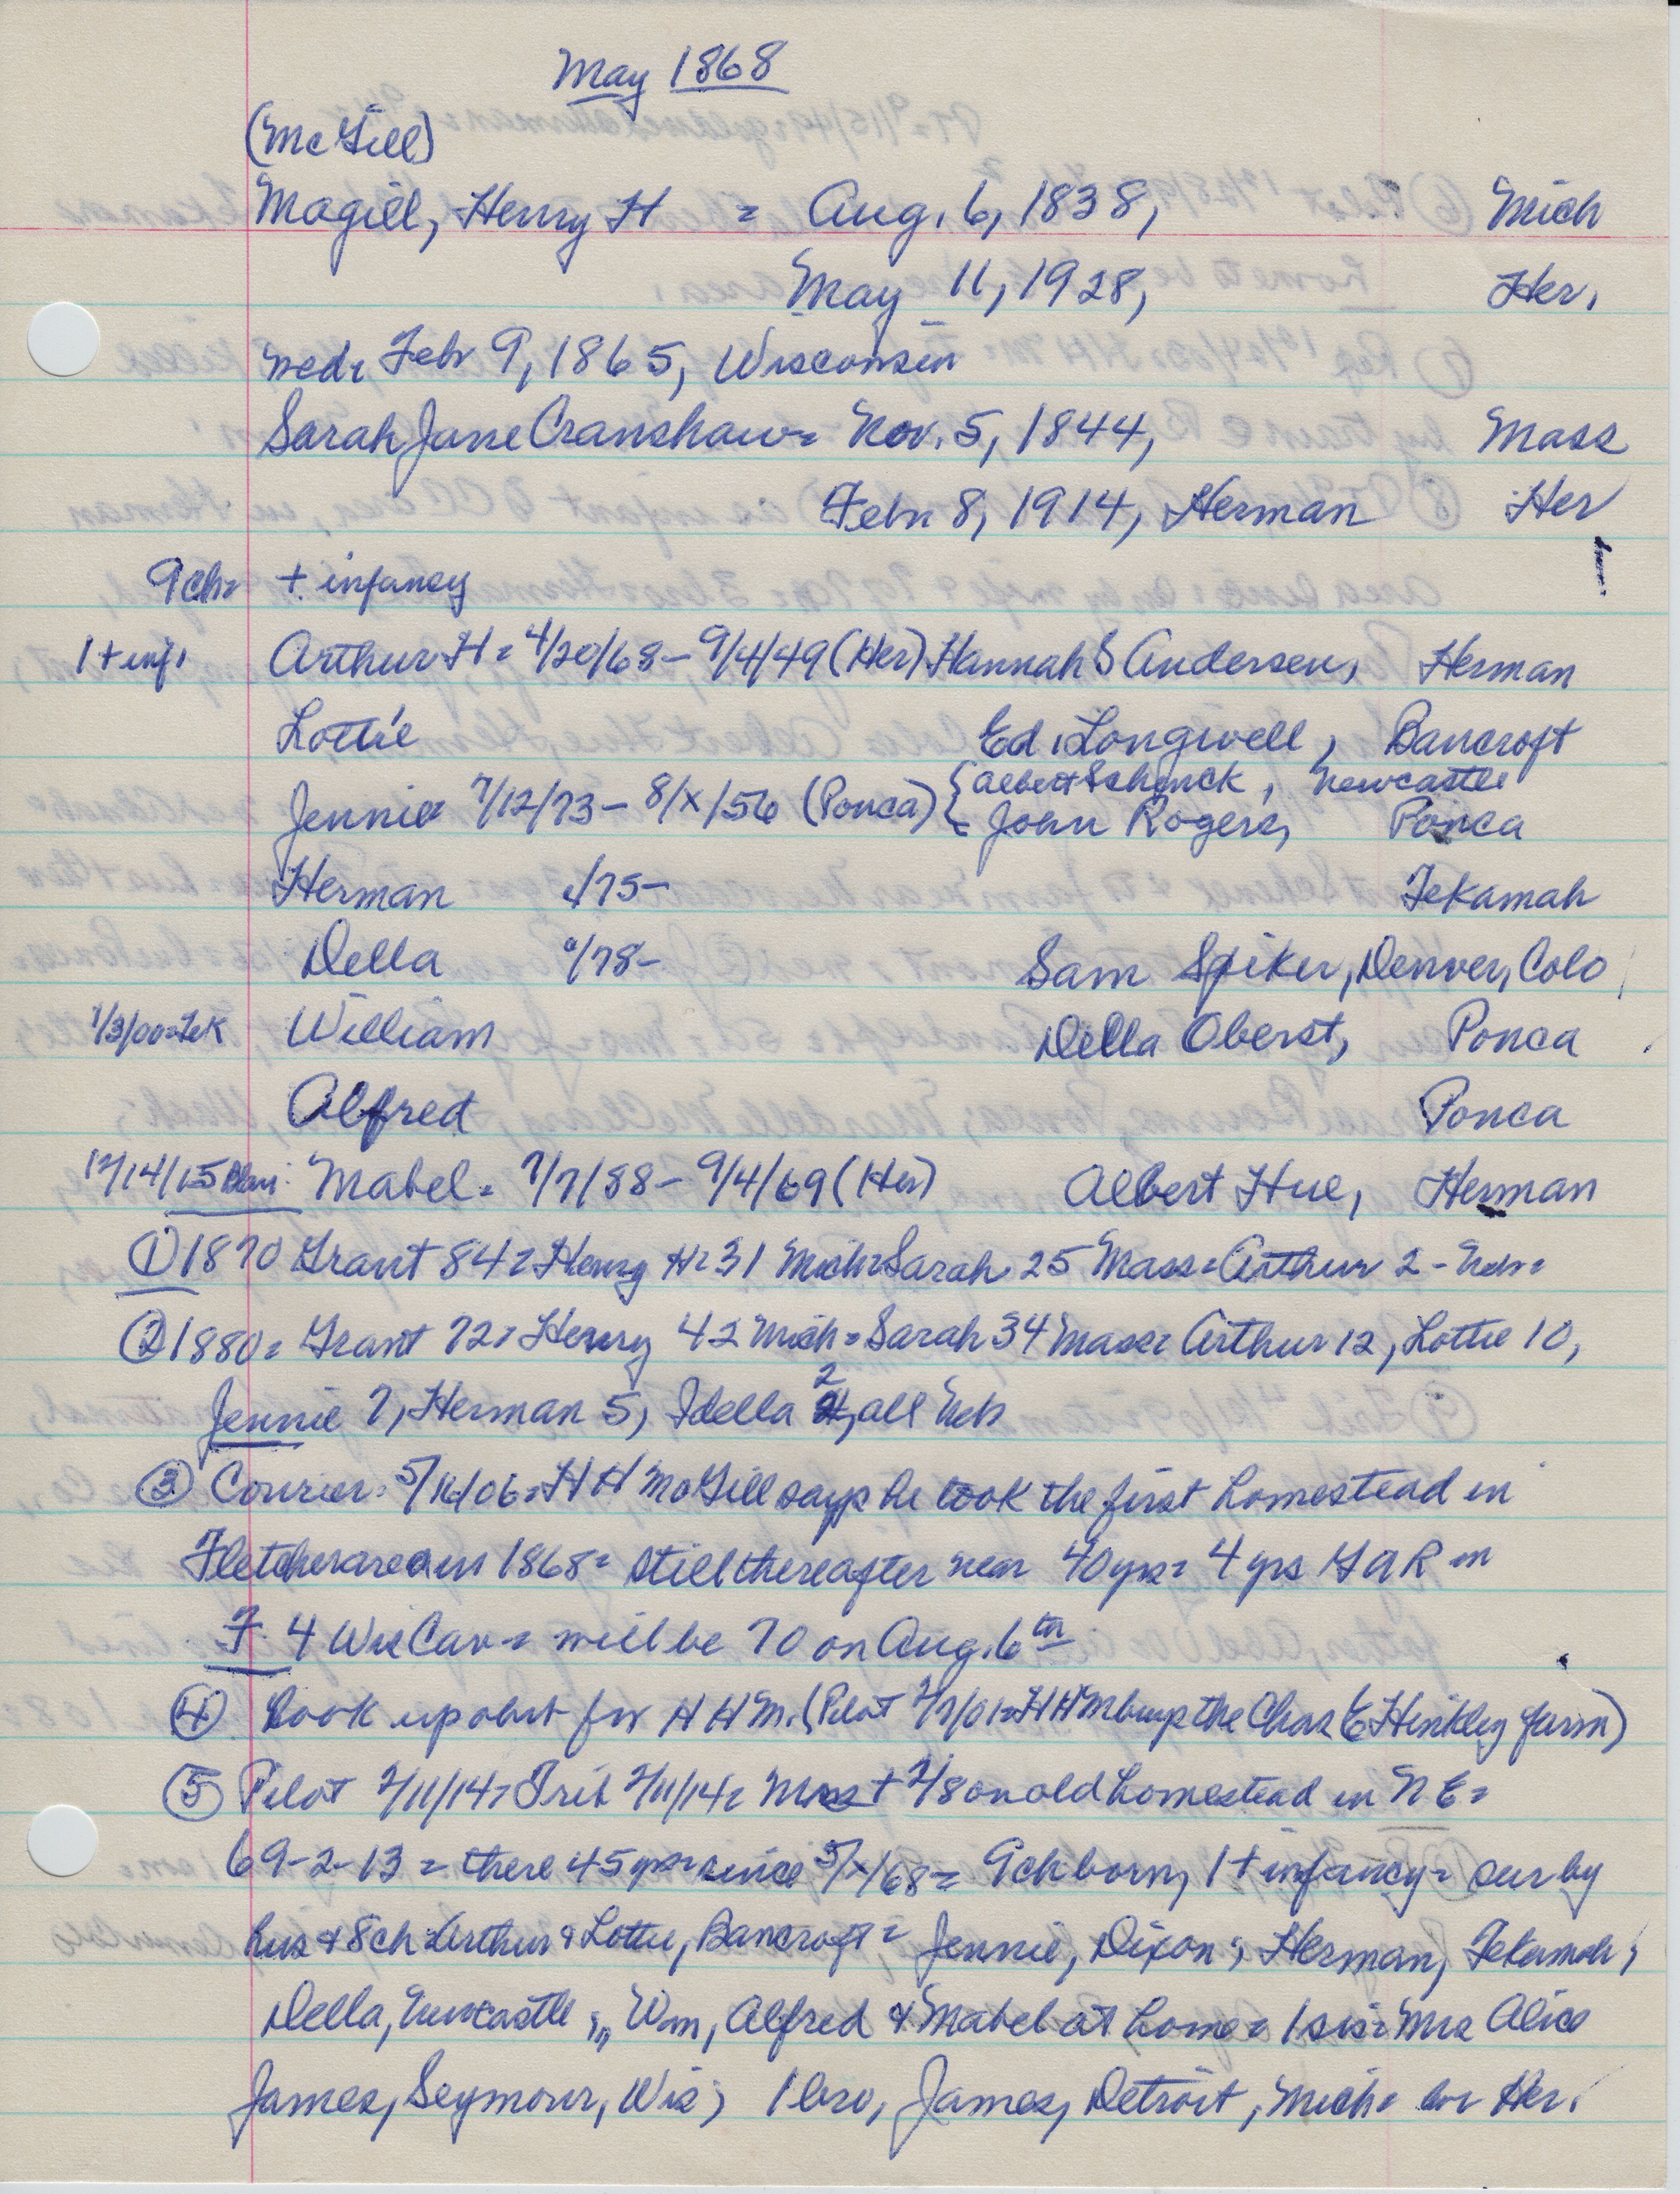 May 1868
(McGill)
Magill, Henry H = Aug. 6, 1838, Mich
May 11, 1928, Her.
md. Feb 9, 1865, Wisconsin
Sarah Jane Cranshaw = Nov. 5, 1844, Mass
Feb 8, 1914, Herman Her
9 ch = + infancy
1 + inf. Arthur H = 4/20/68 – 9/4/49 (Her) Hannah S Andersen, Herman
Lottie Ed. Longwell, Bancroft
{ Albert Schenck, Newcastle
Jennie 7/12/73 – 8/x/56 (Ponca) { John Rogers, Ponca
Herman /75 – Tekamah
Della /78 – Sam Spiker, Denver, Colo
1/3/00=Tek William Della Oberst, Ponca
Alfred Ponca
12/14/15 Mabel = 7/7/88 – 9/4/69 (Her) Albert Hue, Herman
① 1870 Grant 84 = Henry H = 31 Mich = Sarah 25 Mass = Arthur 2 – Neb =
② 1880 = Grant 72 = Henry 42 Mich = Sarah 34 Mass = Arthur 12, Lottie 10,
Jennie 7, Herman 5, Idella 2, all Neb
③ Courier = 5/16/06 = H H McGill says he took the first homestead in
Fletcher area in 1868 = still there after near 40 yrs = 4 yrs G A R in
F. 4 Wis Cav = will be 70 on Aug. 6th
④ Look up obit for H H M. (Pilot 2/7/01 = H H M buys the Chas E Hinkley farm)
⑤ Pilot 2/11/14 = Trib 2/11/14 = Mrs + 2/8 on old homestead in N E =
69-2-13 = there 45 yrs = since 5/x/68 = 9 ch born, 1 + infancy = sur by
hus & 8 ch = Arthur & Lottie, Bancroft = Jennie, Dixon; Herman, Tekamah;
Della, Newcastle; Wm, Alfred & Mabel at home = 1 sis = Mrs Alice
James, Seymour, Wis; 1 bro, James, Detroit, Mich = bur Her.